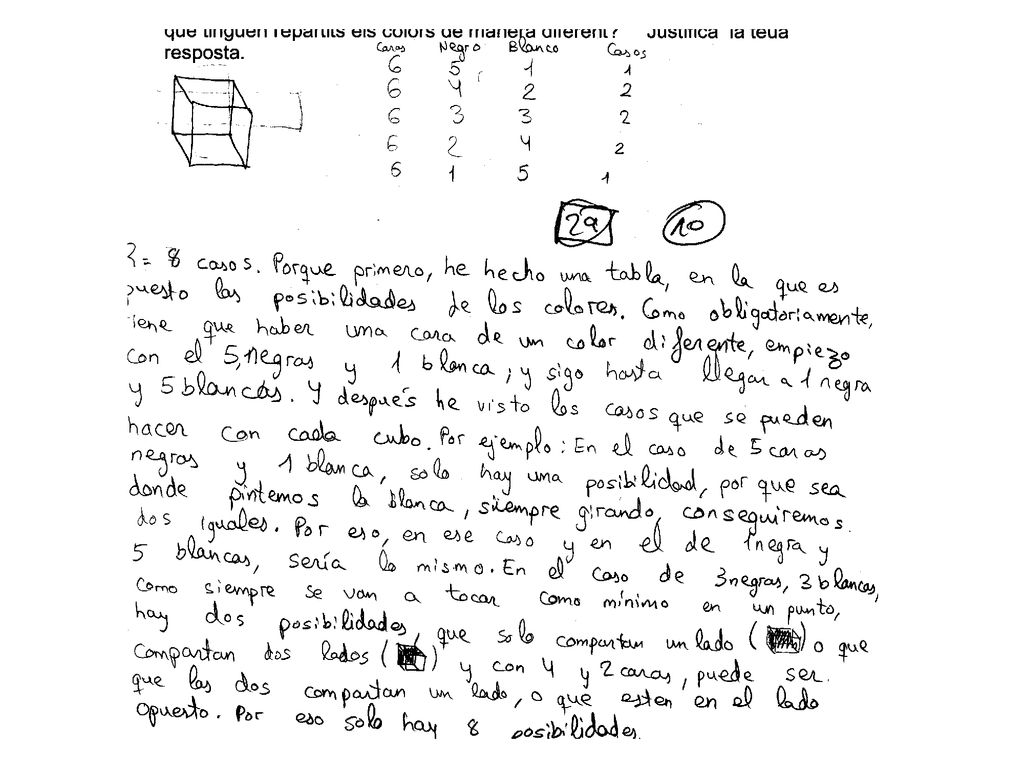 que tinguen repartits els colors de manera diferent? Justifica la teua
resposta.
Caras Negro Blanco Casos
6 5 1 1
6 4 2 2
6 3 3 2
6 2 4 2
6 1 5 1
2a 10
R= 8 casos. Porque primero, he hecho una tabla, en la que es
puesto las posibilidades de los colores. Como obligatoriamente,
tiene que haber una cara de un color diferente, empiezo
con el 5 negras y 1 blanca, y sigo hasta llegar a 1 negra
y 5 blancas. Y después he visto los casos que se pueden
hacer con cada cubo. Por ejemplo: En el caso de 5 caras
negras y 1 blanca, solo hay una posibilidad, por que sea
donde pintemos la blanca, siempre girando, conseguiremos
dos iguales. Por eso, en ese caso y en el de 1 negra y
5 blancas, sería lo mismo. En el caso de 3 negras, 3 blancas,
como siempre se van a tocar como mínimo en un punto,
hay dos posibilidades, que solo compartan un lado ( ) o que
compartan dos lados ( ) y con 4 y 2 caras, puede ser.
que las dos compartan un lado, o que esten en el lado
opuesto. Por eso solo hay 8 posibilidades.